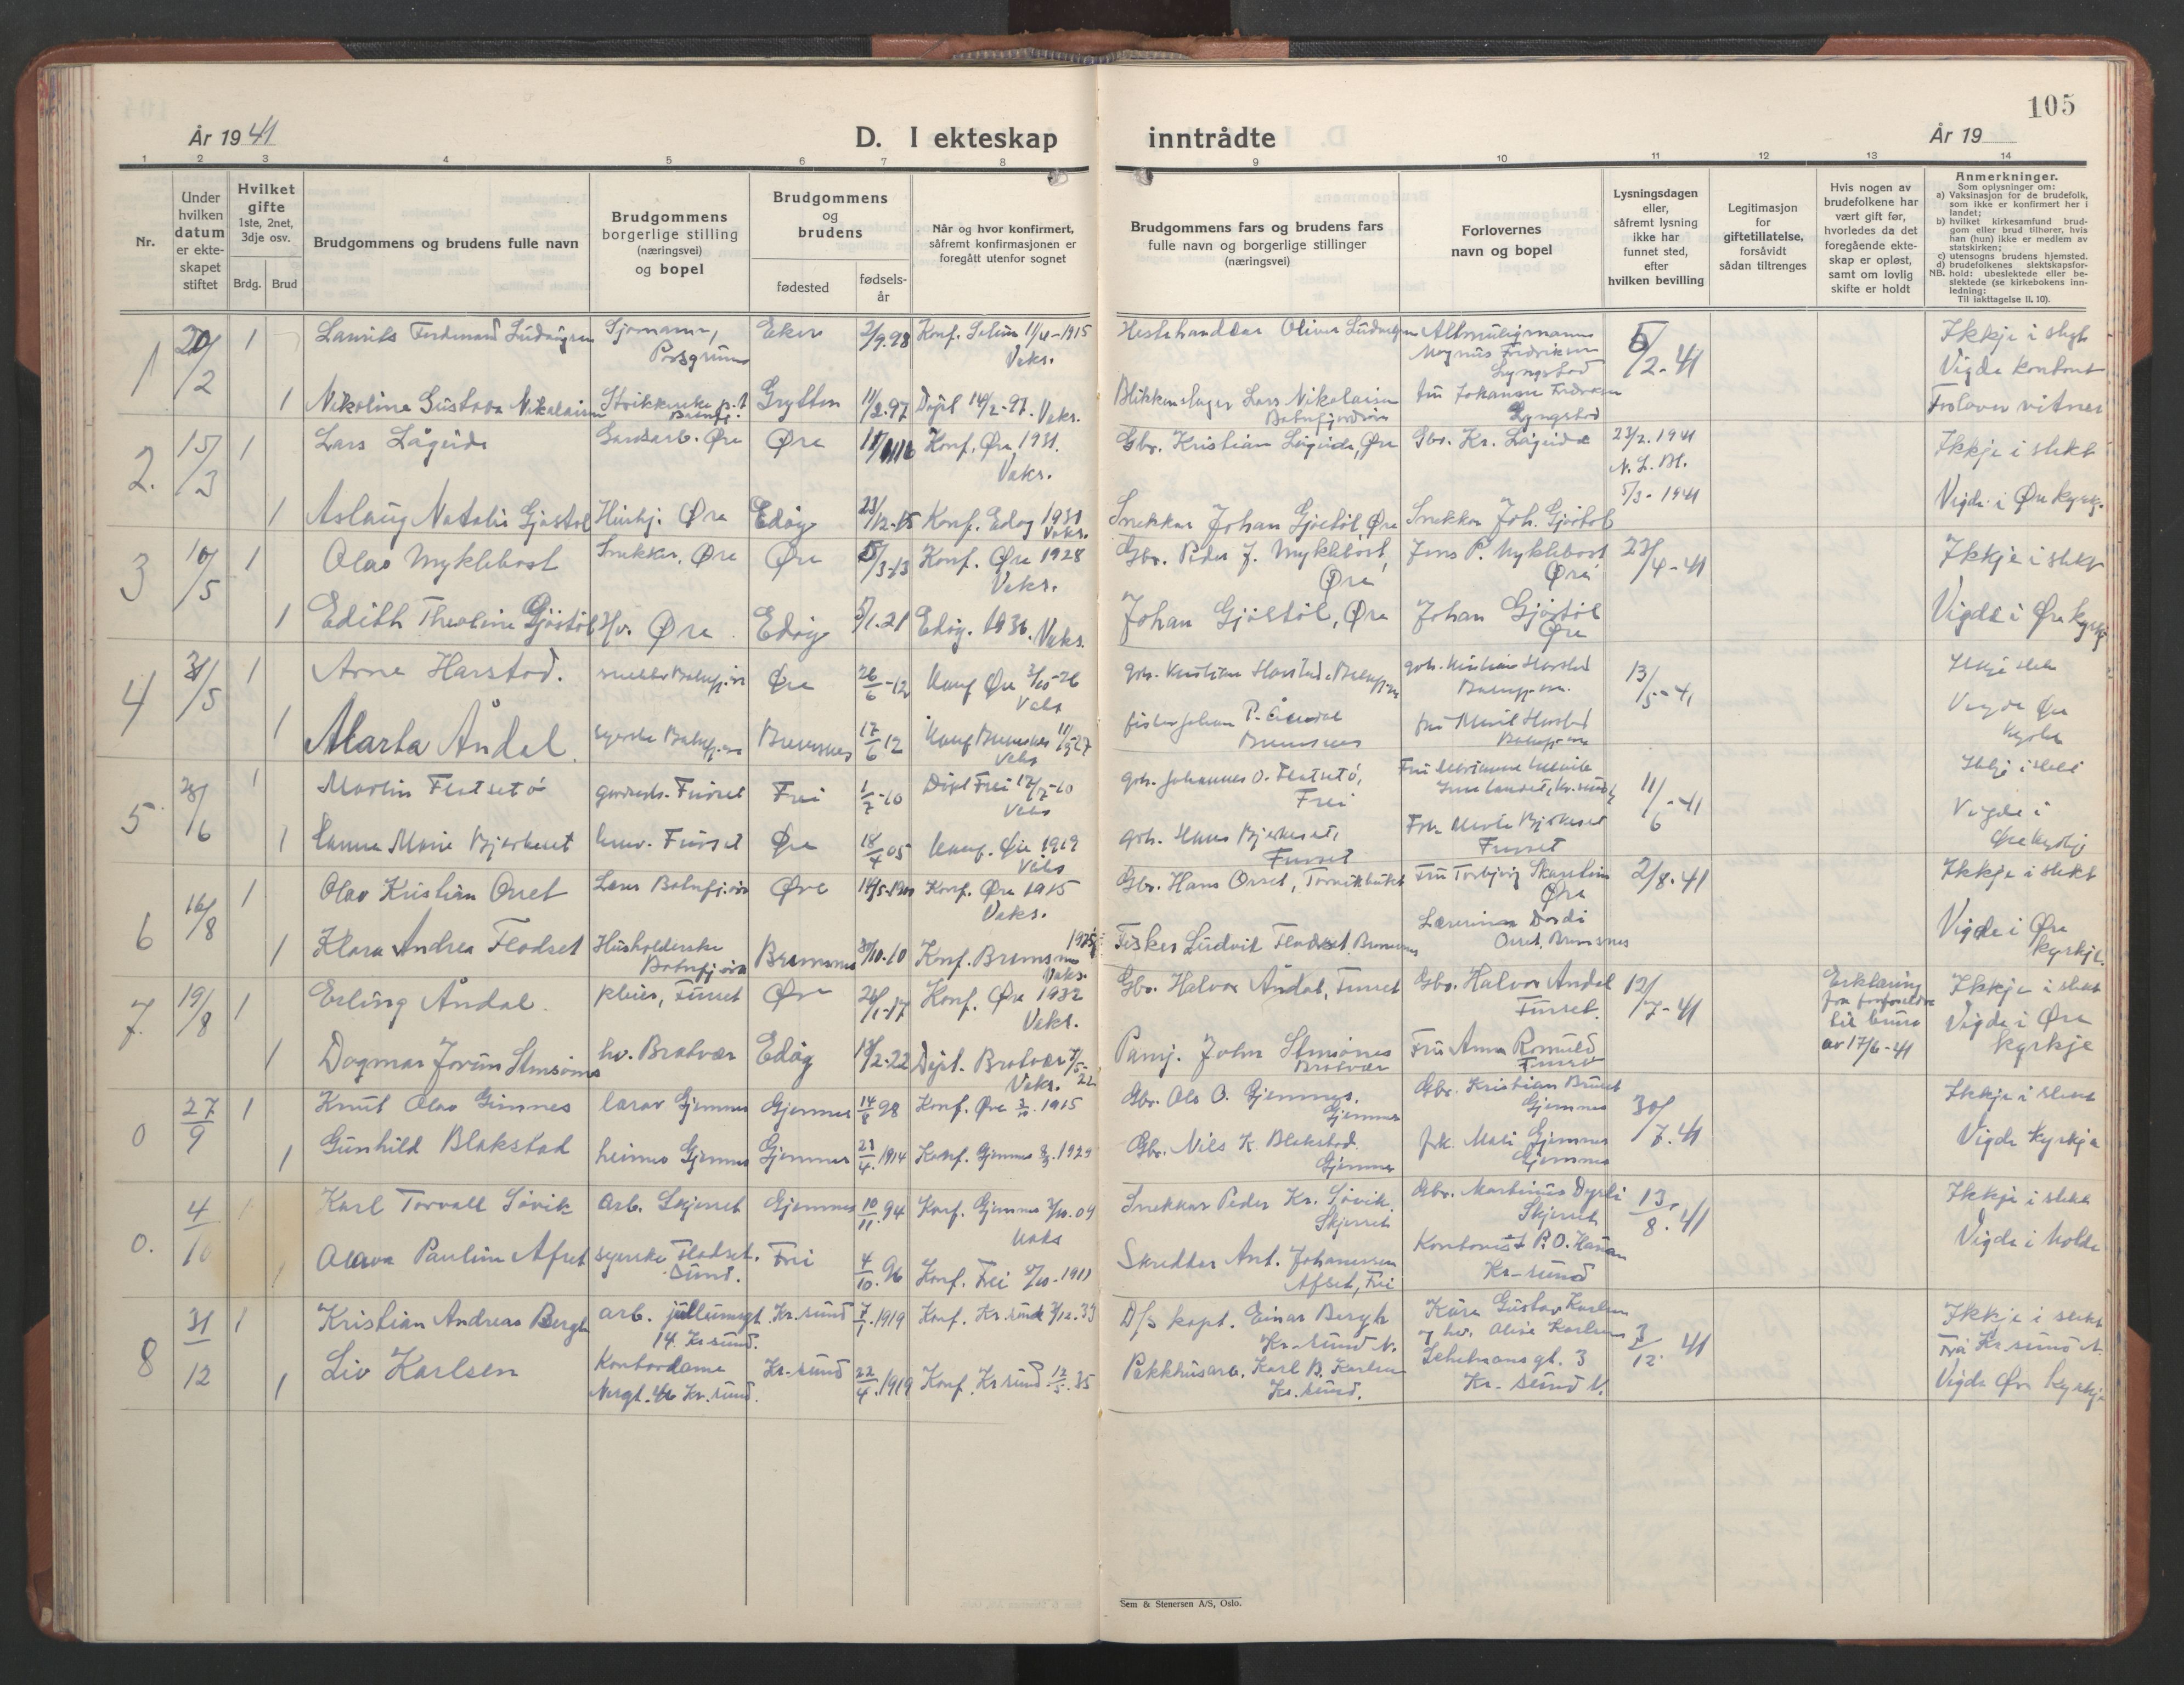 105
År 1941
D. I ekteskap inntrådte
År 19
1 2 3 4 5 6 7 8 9 10 11 12 13 14
Nr.
Under hvilken datum er ekteskapet stiftet
Hvilket gifte 1ste, 2net, 3dje osv.
Brdg. Brud
Brudgommens og brudens fulle navn
Brudgommens borgerlige stilling (næringsvei) og bopel
Brudgommens og brudens
fødested
fødsels-år
Når og hvor konfirmert, såfremt konfirmasjonen er foregått utenfor sognet
Brudgommens fars og brudens fars fulle navn og borgerlige stillinger (næringsvei)
Forlovernes navn og bopel
Lysningsdagen eller, såfremt lysning ikke har funnet sted, efter hvilken bevilling
Legitimasjon for giftetillatelse, forsåvidt sådan tiltrenges
Hvis nogen av brudefolkene har vært gift før, hvorledes da det foregående ekteskap er opløst, samt om lovlig skifte er holdt
Anmerkninger.
Som oplysninger om:
a) Vaksinasjon for de brudefolk, som ikke er konfirmert her i landet;
b) hvilket kirkesamfund brudgom eller brud tilhører, hvis han (hun) ikke er medlem av statskirken;
c) utensogns brudens hjemsted.
d) brudefolkenes slektskapsforhold: ubeslektede eller beslektede (se kirkebokens innledning:
NB. Til iakttagelse II. 10).
1 20/2 1 Laurits Ferdinand Ludvigsen Sjømann, Porsgrunn Eker 2/9.98 Konf. 11/4-1915 Vaks. Hestehandlar Oliver Ludvigsen Altmuligmann Magnus Fredriksen Lyngstad 5/2-41 Ikkje i slekt
1 Nikoline Gustava Nikolaisen Grytten 11/2.97 Døpt 14/2-97. Vaks. Blikkenslager Lars Nikolaisen Batnfjordsøra fru Johanne Fredriksen Lyngstad Vigde
2. 15/3 1 Lars Lågeide Gardsarb. Øre Øre Konf. Øre 1931. Vaks. Gbr. Kristian Lågeide, Øre Gbr. Kr. Lågeide 23/2.1941 N. L. Bl. 5/3-1941 Ikkje i slekt
1 Aslaug Natalie Gjøstøl Hushj. Øre Edøy 23/12-15 Konf. Edøy 1931 Vaks. Snekkar Johan Gjøstøl, Øre Snekkar Joh. Gjøstøl Vigde i Øre kyrkje.
3 10/5 1 Olav Myklebost Snekkar, Øre Øre 5/3-13 Konf. Øre 1928 Vaks. Gbr. Peder J. Myklebost, Øre Jens P. Myklebost Øre 23/4-41 Ikkje i slekt
1 Edith Theoline Gjøstøl Hv. Øre Edøy 5/1.21 Edøy. 1936. Vaks. Johan Gjøstøl, Øre Johan Gjøstøl Øre Vigde i Øre kyrkje
4 31/5 1 Arne Harstad. Øre 26/6-12 Konf Øre 3/10-26 Vaks grb. Kristian Harstad, grb. Kristian Harstad 13/5-41
1 Marta Åndal. Bremsnes 17/6 12 Konf Bremsnes 11/9-27 Vaks fisker Johan P. Åndal Bremsnes fru Marit Harstad Vigde Øre kyrkje
5 28/6 1 Martin Flatsetø Furset Frei 1/7-10 Døpt Frei 17/7-10 Vaks grb. Johannes O. Flatsetø, Frei 11/6-41 Ikkje i slekt
1 Hanna Marie Bjerkeset Furset Øre 18/4 05 Konf. Øre 1919 Vaks grb. Hans Bjerkeset, Furset Marta Bjerkeset Furset Vigde i Øre kyrkje
6 16/8 1 Olav Kristian Orset Batnfj.øra Øre Konf. Øre 1915 Vaks. Gbr. Hans Orset, Torvikbukt Fru Torbjørg Øre 2/8-41 Ikkje i slekt
1 Klara Andrea Fladset Husholderske Batnfj.øra Bremsnes 30/10-10 Konf. Bremsnes 1925 Vaks. Fisker Ludvik Fladset Bremsnes Lærerinne Dordi Orset, Bremsnes Vigde i Øre kyrkje.
7. 19/8 1 Erling Åndal. Furset Øre Konf. Øre 1932 Vaks. Gbr. Halvor Åndal, Furset Gbr. Halvor Åndal Furset. 12/7-41 Erklæring fra foreldre til brura av 17/6-41 Ikkje i slekt
1 Dagmar Jorun Simsønes hv. Bratvær Edøy 19/2-22 Døpt. Bratvær 7/5-22 Vaks. John Simsønes Bratvær Fru Anna Romuld Furset Vigde i Øre kyrkje
0 27/9 1 Knut Olav Gimnes lærar Gjemnes Gjemnes 14/8 98 Konf. Øre 3/10.1915 Gbr. Ole O. Gjemnes, Gjemnes Gbr. Kristian Bruset Gjemnes 30/7.41 Ikkje i slekt
1 Gunhild Blakstad heime Gjemnes Gjemnes 23/4.1914 Konf. Gjemnes 1929 Gbr. Nils K. Blakstad. Gjemnes frk. Mali Gjemnes Gjemnes Vigde kyrkja
0. 4/10 1 Karl Torvald Søvik arb. Skjerset Gjemnes 10/11.94 Konf. Gjemnes 3/10.09 Vaks Snekkar Peder Kr. Søvik. Skjerset Gbr. Martinus Dyrli Skjerset 13/8.41 Ikkje i slekt
1 Olava Pauline Afset syerske Flatset. Sund. Frei 4/10.96 Konf. Frei 1911 Skredder Ant. Johannesen Afset, Frei Kontorist P. O. Kr-sund Vigde i Molde
8 31/12 1 Kristian Andreas Bergh arb. 14 Kr.sund. Kr.sund 7/1.1919 Konf. Kr.sund D/s kapt. Einar Bergh Kr-sund N. Kåre Gustav Karlsen og hv. Alise Karlsen gt. 3 Kr-sund N. 3/12.41 Ikkje i slekt Frå Kr.sund N.
1 Liv Karlsen Kontordame Kr.sund. Kr-sund 22/4.1919 Konf. Kr.sund 12/5.35 Pakkhusarb. Karl B. Karlsen Kr.sund. Vigde Øre kyrkje
Sem & Stenersen A/S, Oslo.